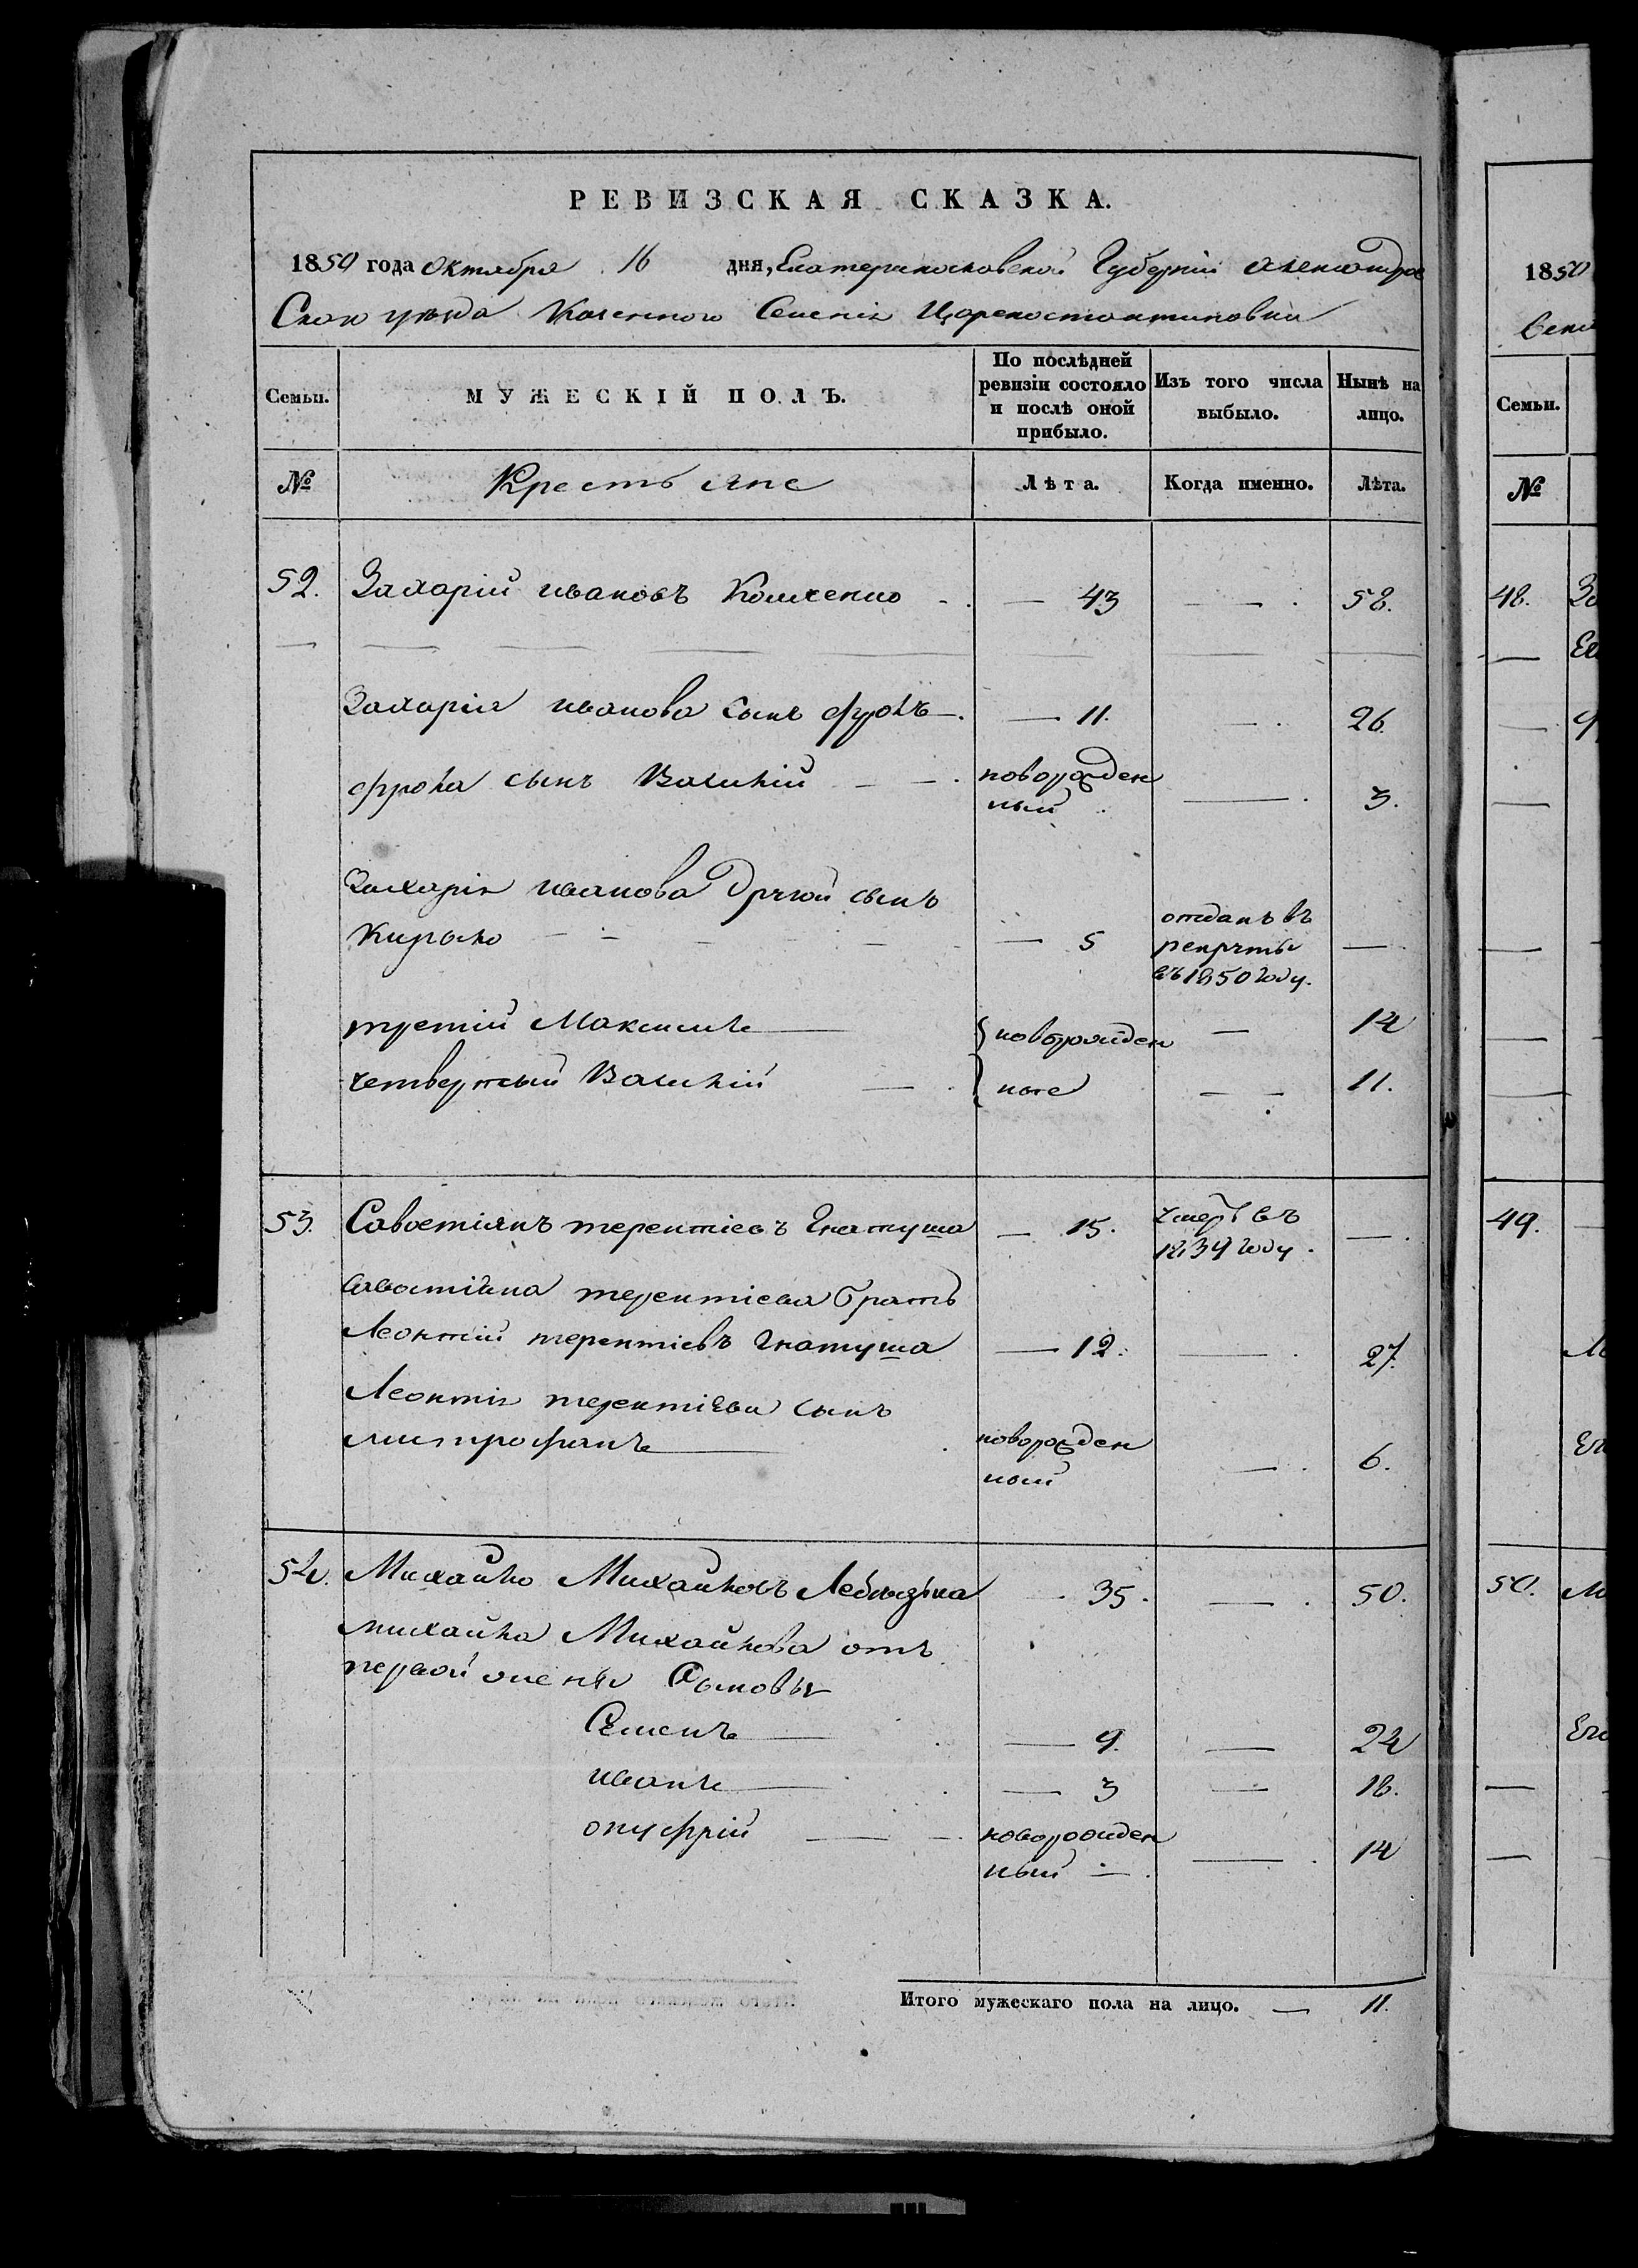 РЕВИЗСКАЯ СКАЗКА.
1850 года Октября 16 дня, Екатеринославской Губерніи Александров
Скаго уѣзда Казенного Селенія Цареконстантиновки
Семьи.
МУЖЕСКІЙ ПОЛЪ.
По послѣдней
ревизіи состояло
и послѣ оной
прибыло.
Изъ того числа
выбыло.
Нынѣ на
лицо.
№
Крестьяне
Лѣта.
Когда именно.
Лѣта.
52. Захарій ивановъ — 43 — 58.
Захарія иванова сынъ фролъ — 11. — 26.
фрола сынъ Василій — новорожден
ный — 3.
Захарія иванова другой сынъ
Кирыло — 5 отданъ въ
рекруты
въ 1850 году. —
третій Максимъ — новорожден — 14
четвертый Василій — ные — 11.
53. Савостіянъ терентіевъ Гнатуша — 15. умеръ въ
1839 году. —
Савостіяна терентіева братъ
Леонтій терентіевъ Гнатуша — 12. — 27.
Леонтія терентіева сынъ
митрофанъ — новорожден
ный — 6.
54. Михайло Михайловъ — 35. — 50.
михайла Михайлова отъ
первой жены Сыновья
Семенъ — 9. — 24
иванъ — 3 — 18.
онуфрій — новорожден
ный — 14
Итого мужескаго пола на лицо. — 11.
1850
Семьи.
№
48.
49.
50.